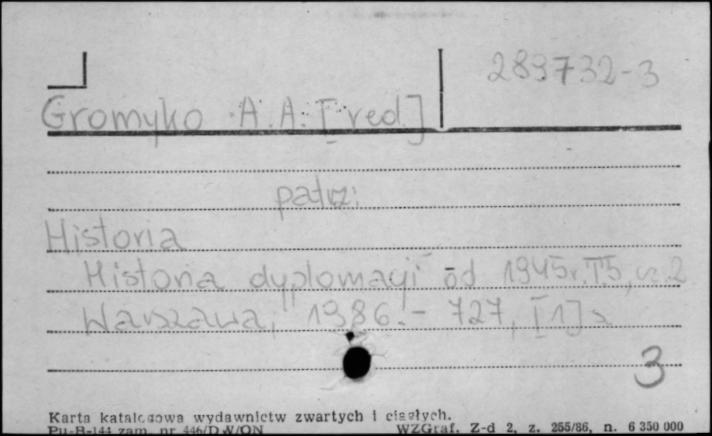 289732-3
Gromyko A.A. [red]
patrz:
Historia
Historia dyplomacji od 1945r. T.5, cz.2
Warszawa, 1986.- 727, [1] s
3
Karta katalogowa wydawnictw zwartych i ciągłych.
Pu-B-144 zam. nr 446/D W/ON WZGraf. Z-d 2, z. 255/86, n. 6 350 000